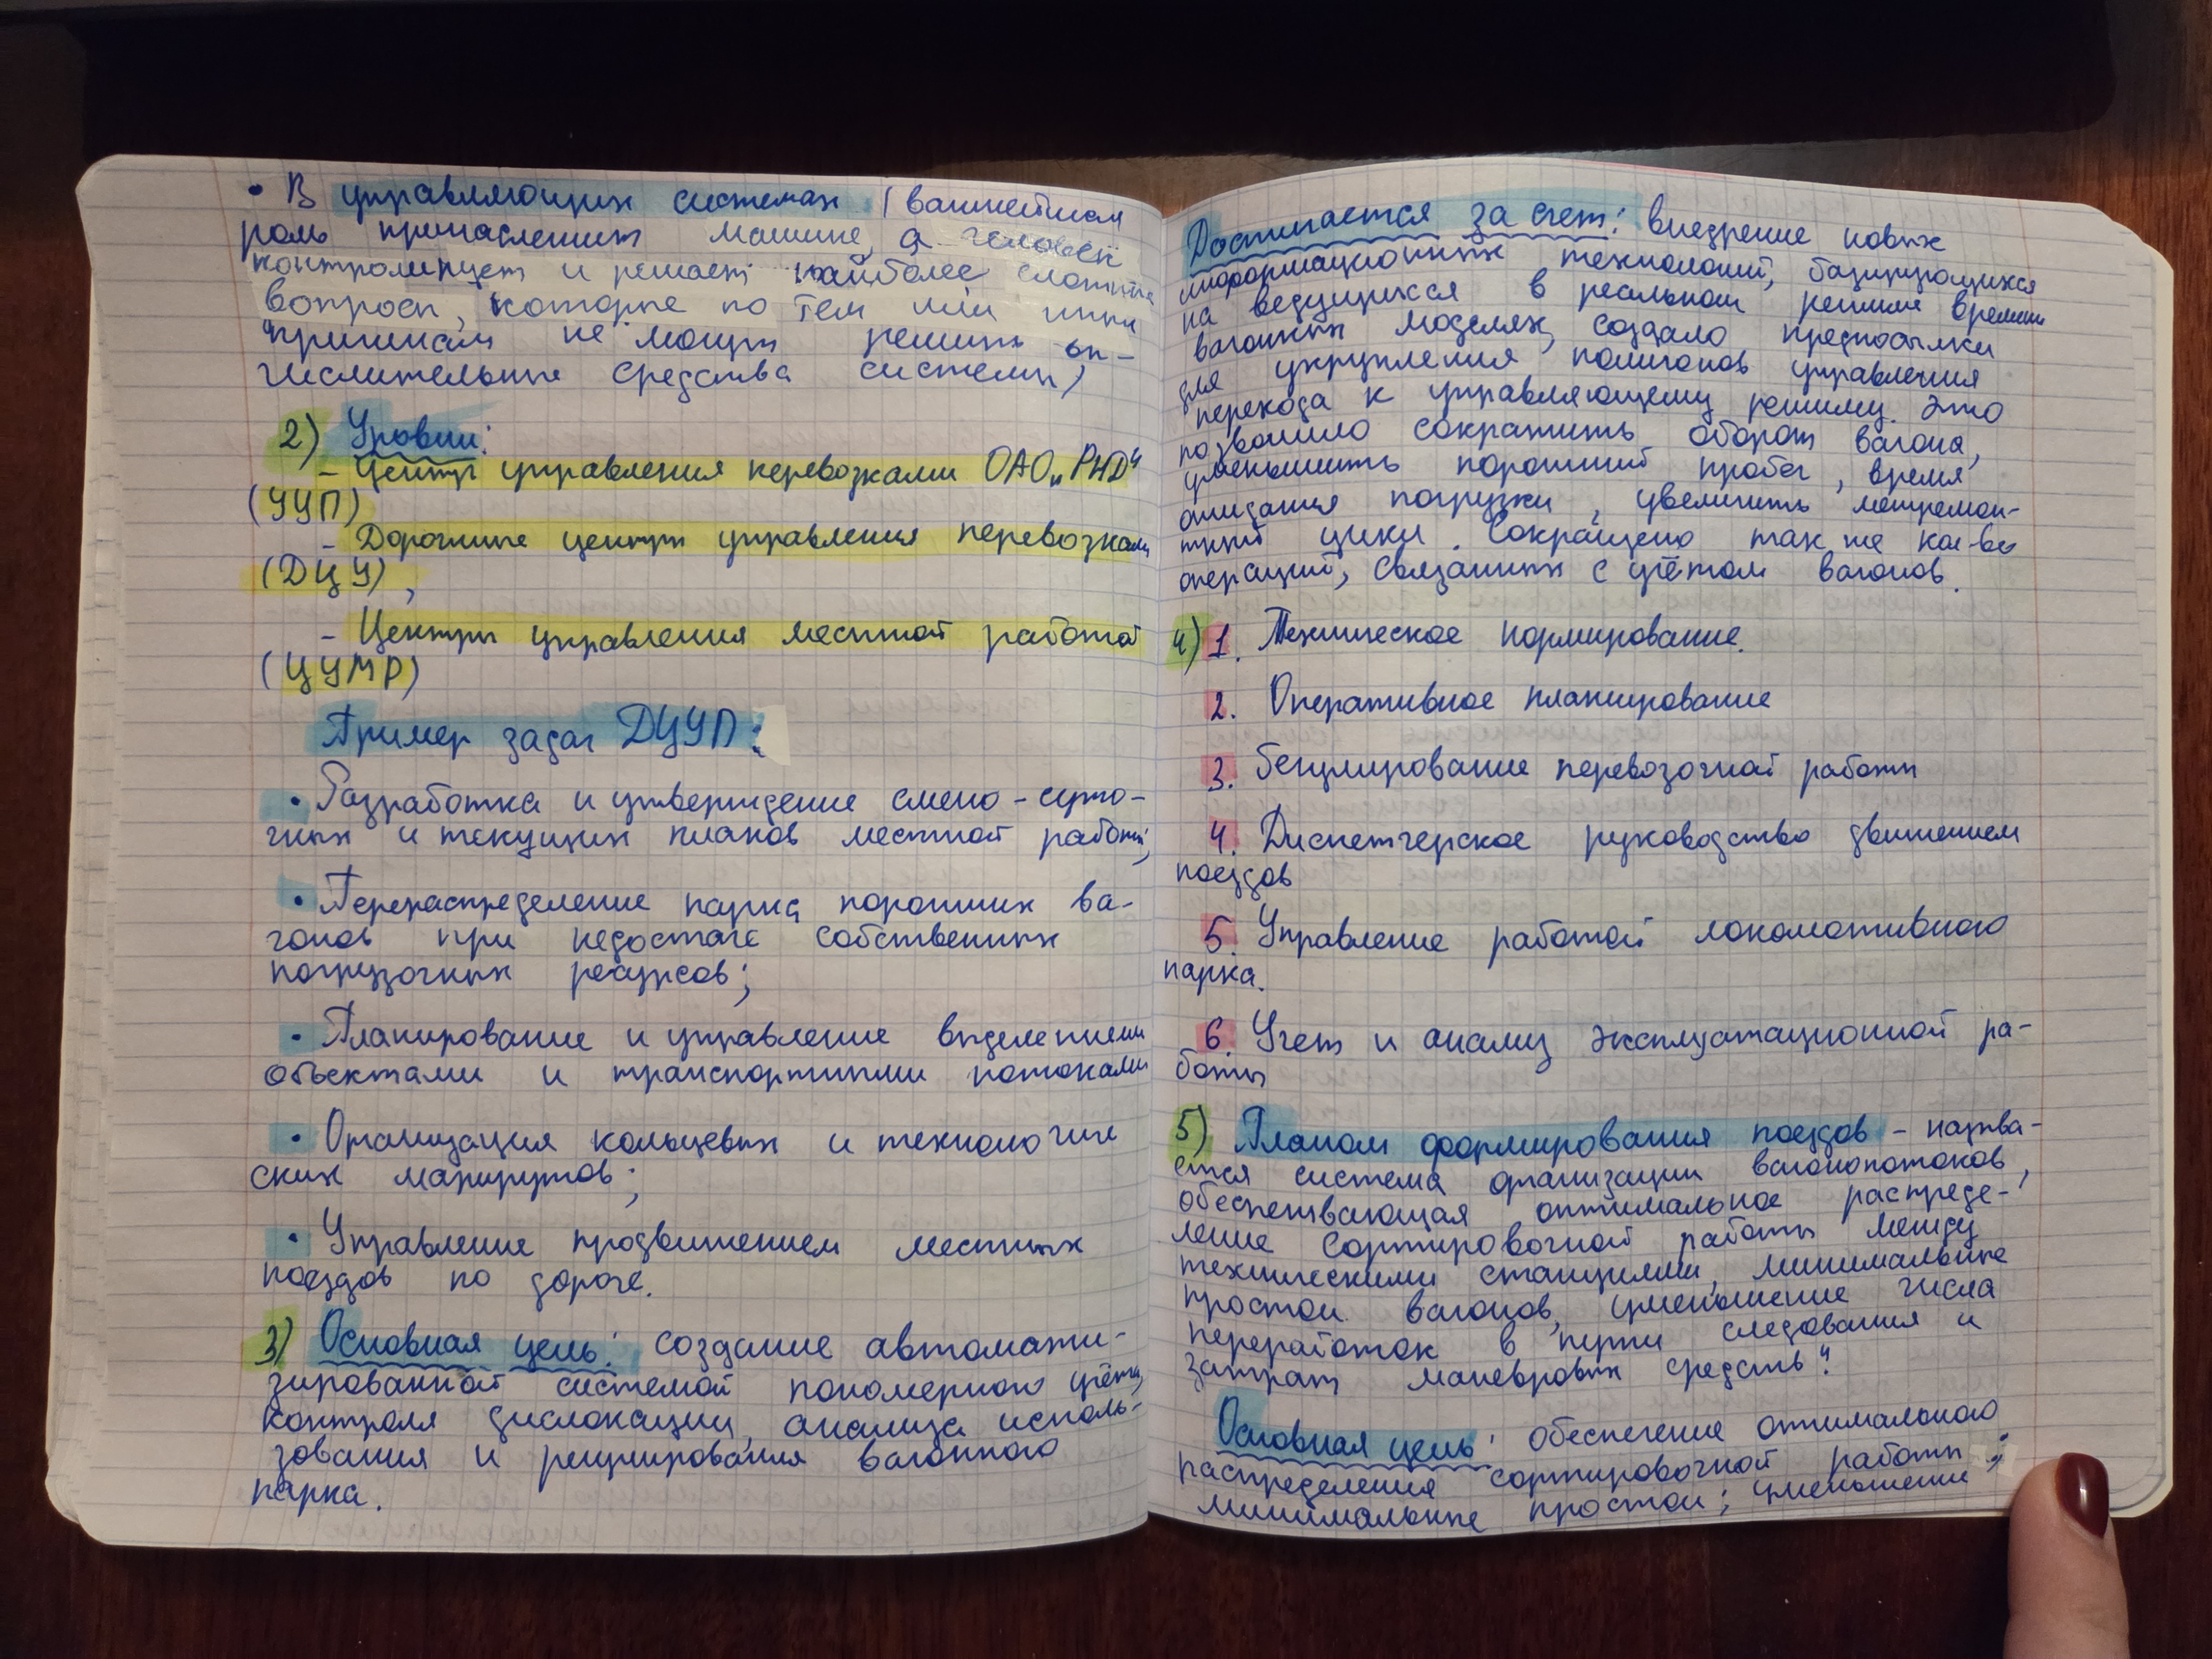 • В управляющих системах (важнейшая
роль причисленных машине, а человек
контролирует и решает наиболее сложные
вопросы, которые по тем или иным
причинам не могут решить вы-
числительные средства системы)
2) Уровни:
- Центр управления перевозками ОАО „РЖД"
(ЦУП)
- Дорожные центры управления перевозками
(ДЦУ),
- Центры управления местной работой
(ЦУМР)
Пример задач ДЦУП:
• Разработка и утверждение смено-суто-
чных и текущих планов местной работы;
• Перераспределение парка порожних ва-
гонов при недостаче собственных
погрузочных ресурсов;
• Планирование и управление выделенными
объектами и транспортными потоками
• Организация кольцевых и технологиче
ских маршрутов;
• Управление продвижением местных
поездов по дороге.
3) Основная цель: создание автомати-
зированной системой пономерного учёта,
контроля дислокации, анализа исполь-
зования и регулирования вагонного
парка.
Достигается за счет: внедрение новых
информационных технологий, базирующихся
на ведущихся в реальном режиме времени
вагонных моделях, создало предпосылки
для укрупления полигонов управления
перехода к управляющему режиму. Это
позволило сократить оборот вагона,
уменьшить порожний пробег, время
ожидания погрузки, увеличить межремон-
тный цикл. Сокращено так же кол-во
операций, связанных с учётом вагонов.
4) 1. Техническое нормирование.
2. Оперативное планирование
3. Регулирование перевозочной работы
4. Диспетчерское руководство движением
поездов
5. Управление работой локомотивного
парка.
6. Учет и анализ эксплуатационной ра-
боты
5) Планом формирования поездов - называ-
ется система организации вагонопотоков,
обеспечивающая оптимальное распреде-
ление сортировочной работы между
техническими станциями, минимальные
простои вагонов, уменьшение числа
переработок в пути следования и
затрат маневровых средств"
Основная цель: обеспечение оптимального
распределения сортировочной работы;
минимальные простои; уменьшение